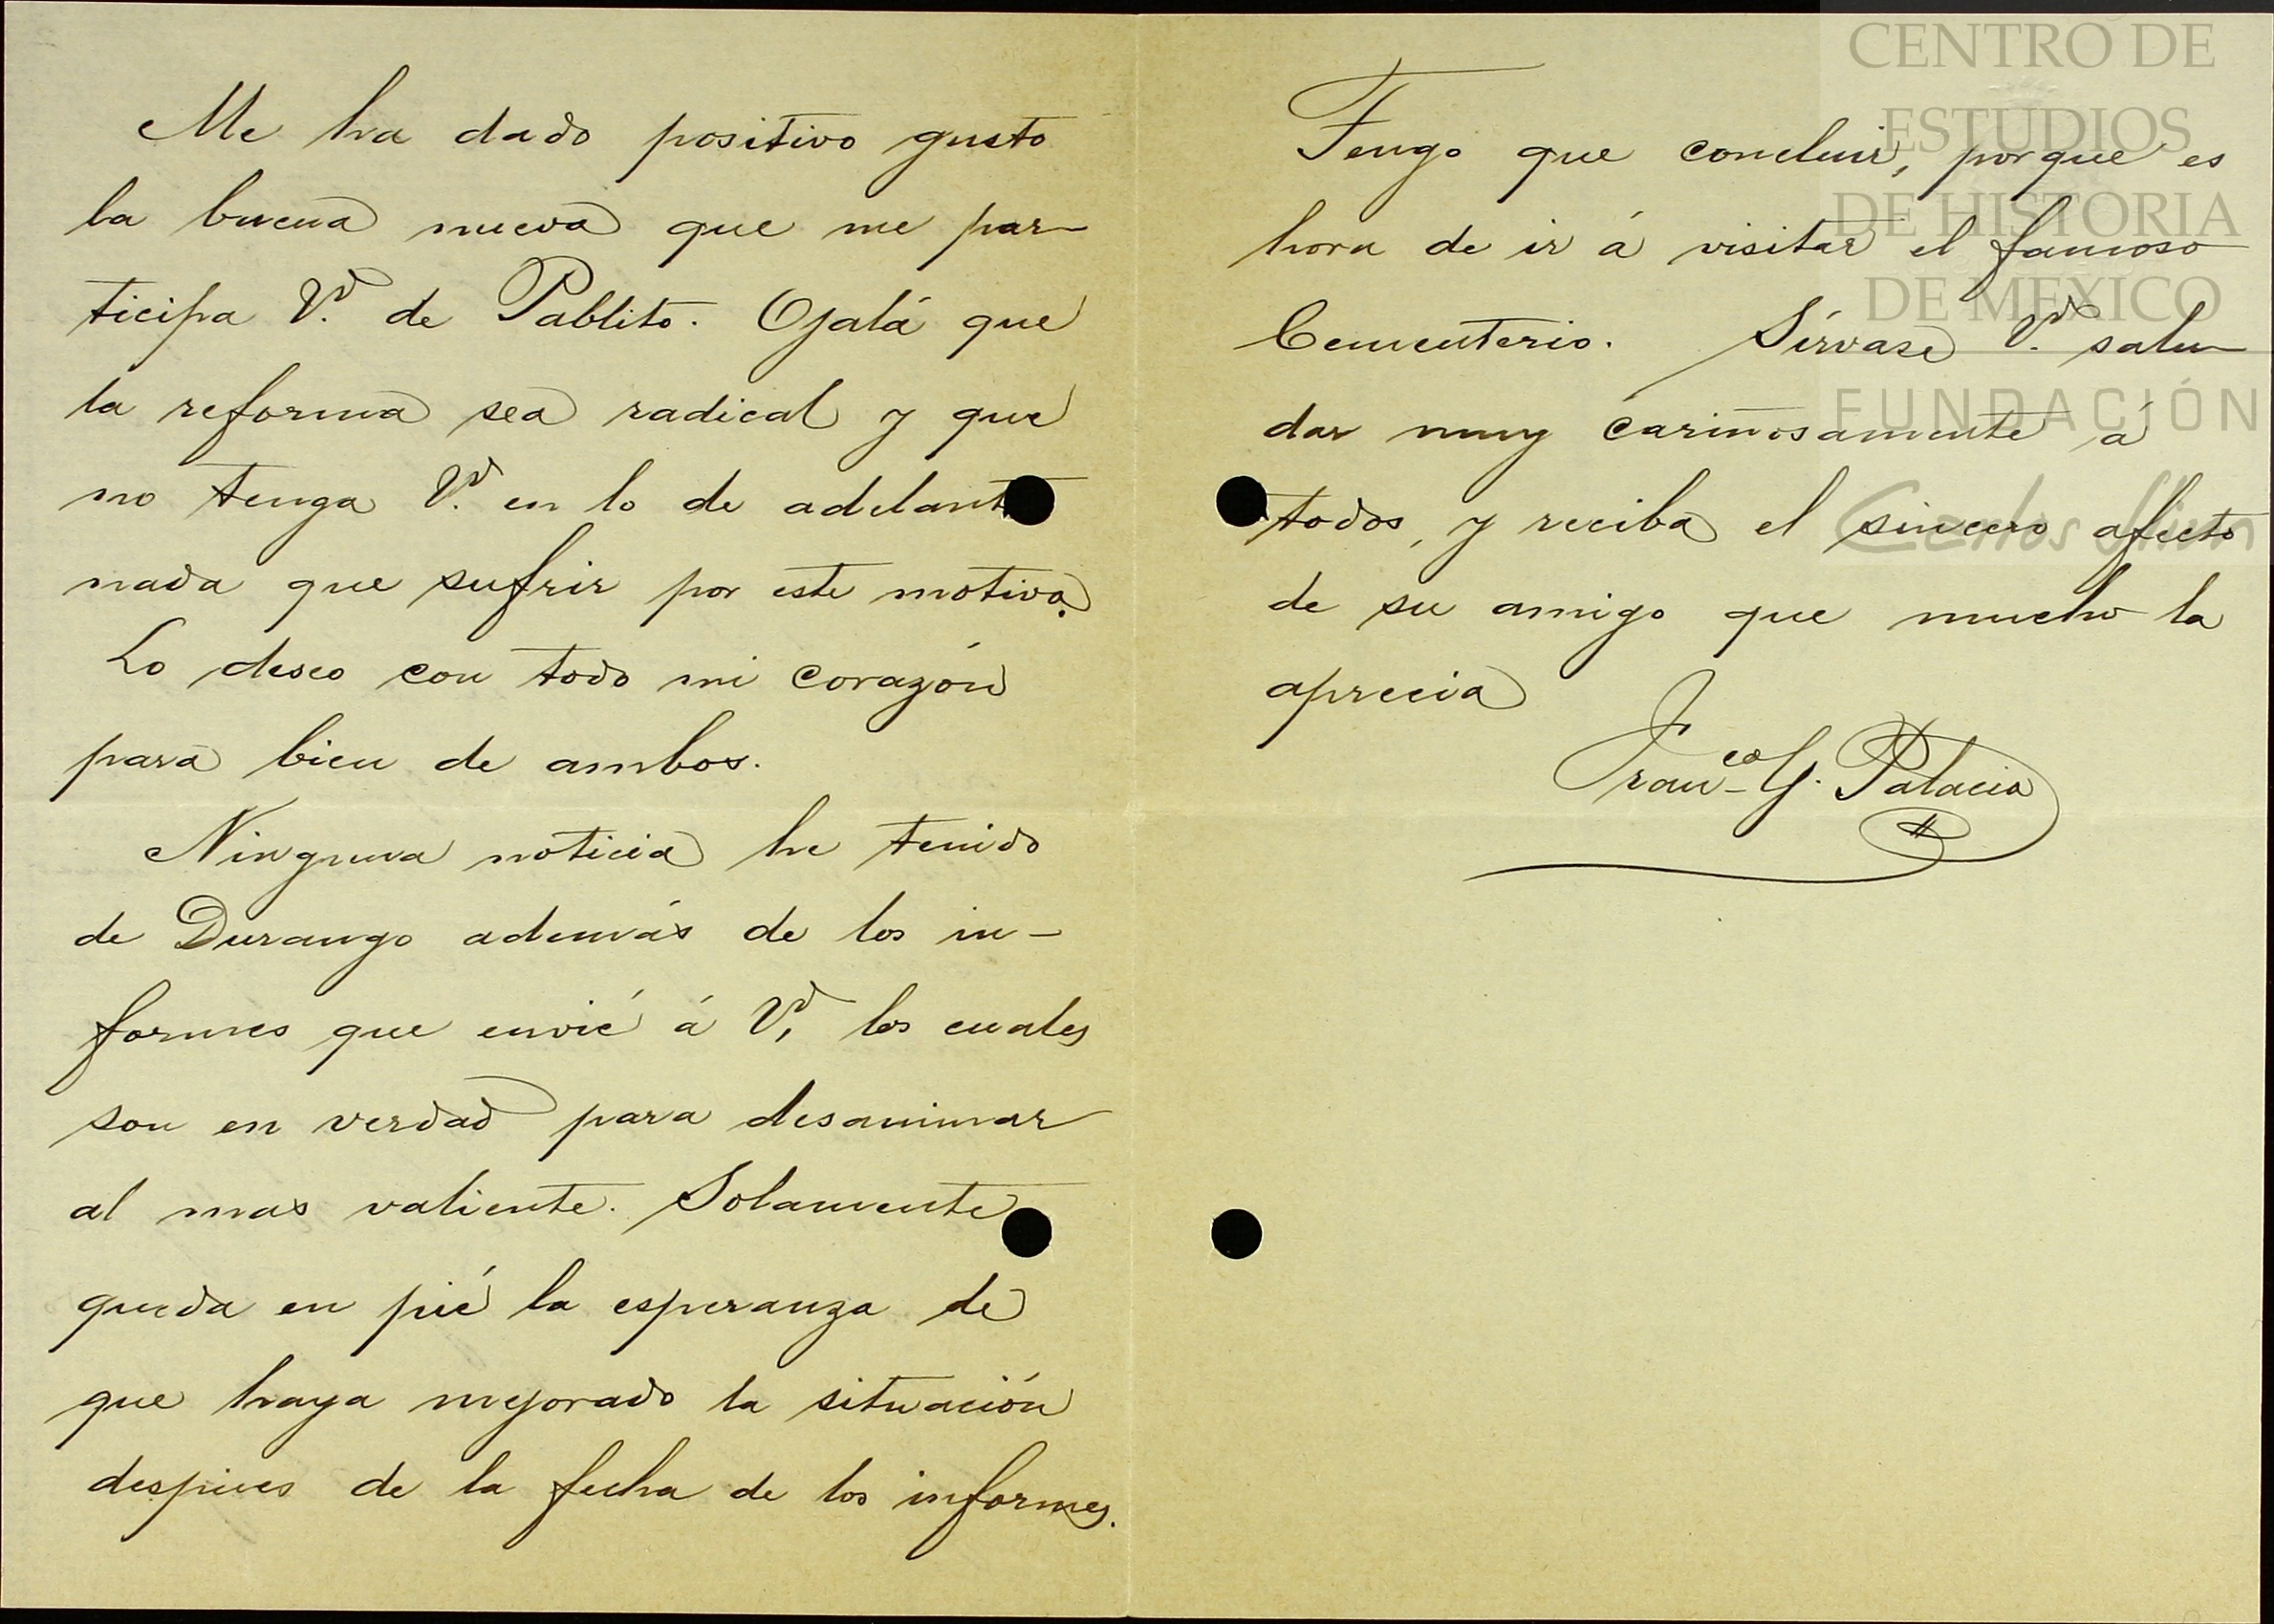 Me ha dado positivo gusto
la buena nueva que me par-
ticipa Vd. de Pablito. Ojalá que
la reforma sea radical y que
no tenga Vd. en lo de adelante
nada que sufrir por este motivo.
Lo deseo con todo mi corazón
para bien de ambos.
Ninguna noticia he tenido
de Durango además de los in-
formes que envié á Vd, los cuales
son en verdad para desanimar
al mas valiente. Solamente
queda en pié la esperanza de
que haya mejorado la situación
despues de la fecha de los informes.
Tengo que concluir, porque es
hora de ir á visitar el famoso
Cementerio. Sírvase Vd. salu-
dar muy cariñosamente á
todos, y reciba el sincero afecto
de su amigo que mucho la
aprecia
Franco G. Palacio
CENTRO DE
ESTUDIOS
DE HISTORIA
DE MEXICO
FUNDACIÓN
Carlos Slim